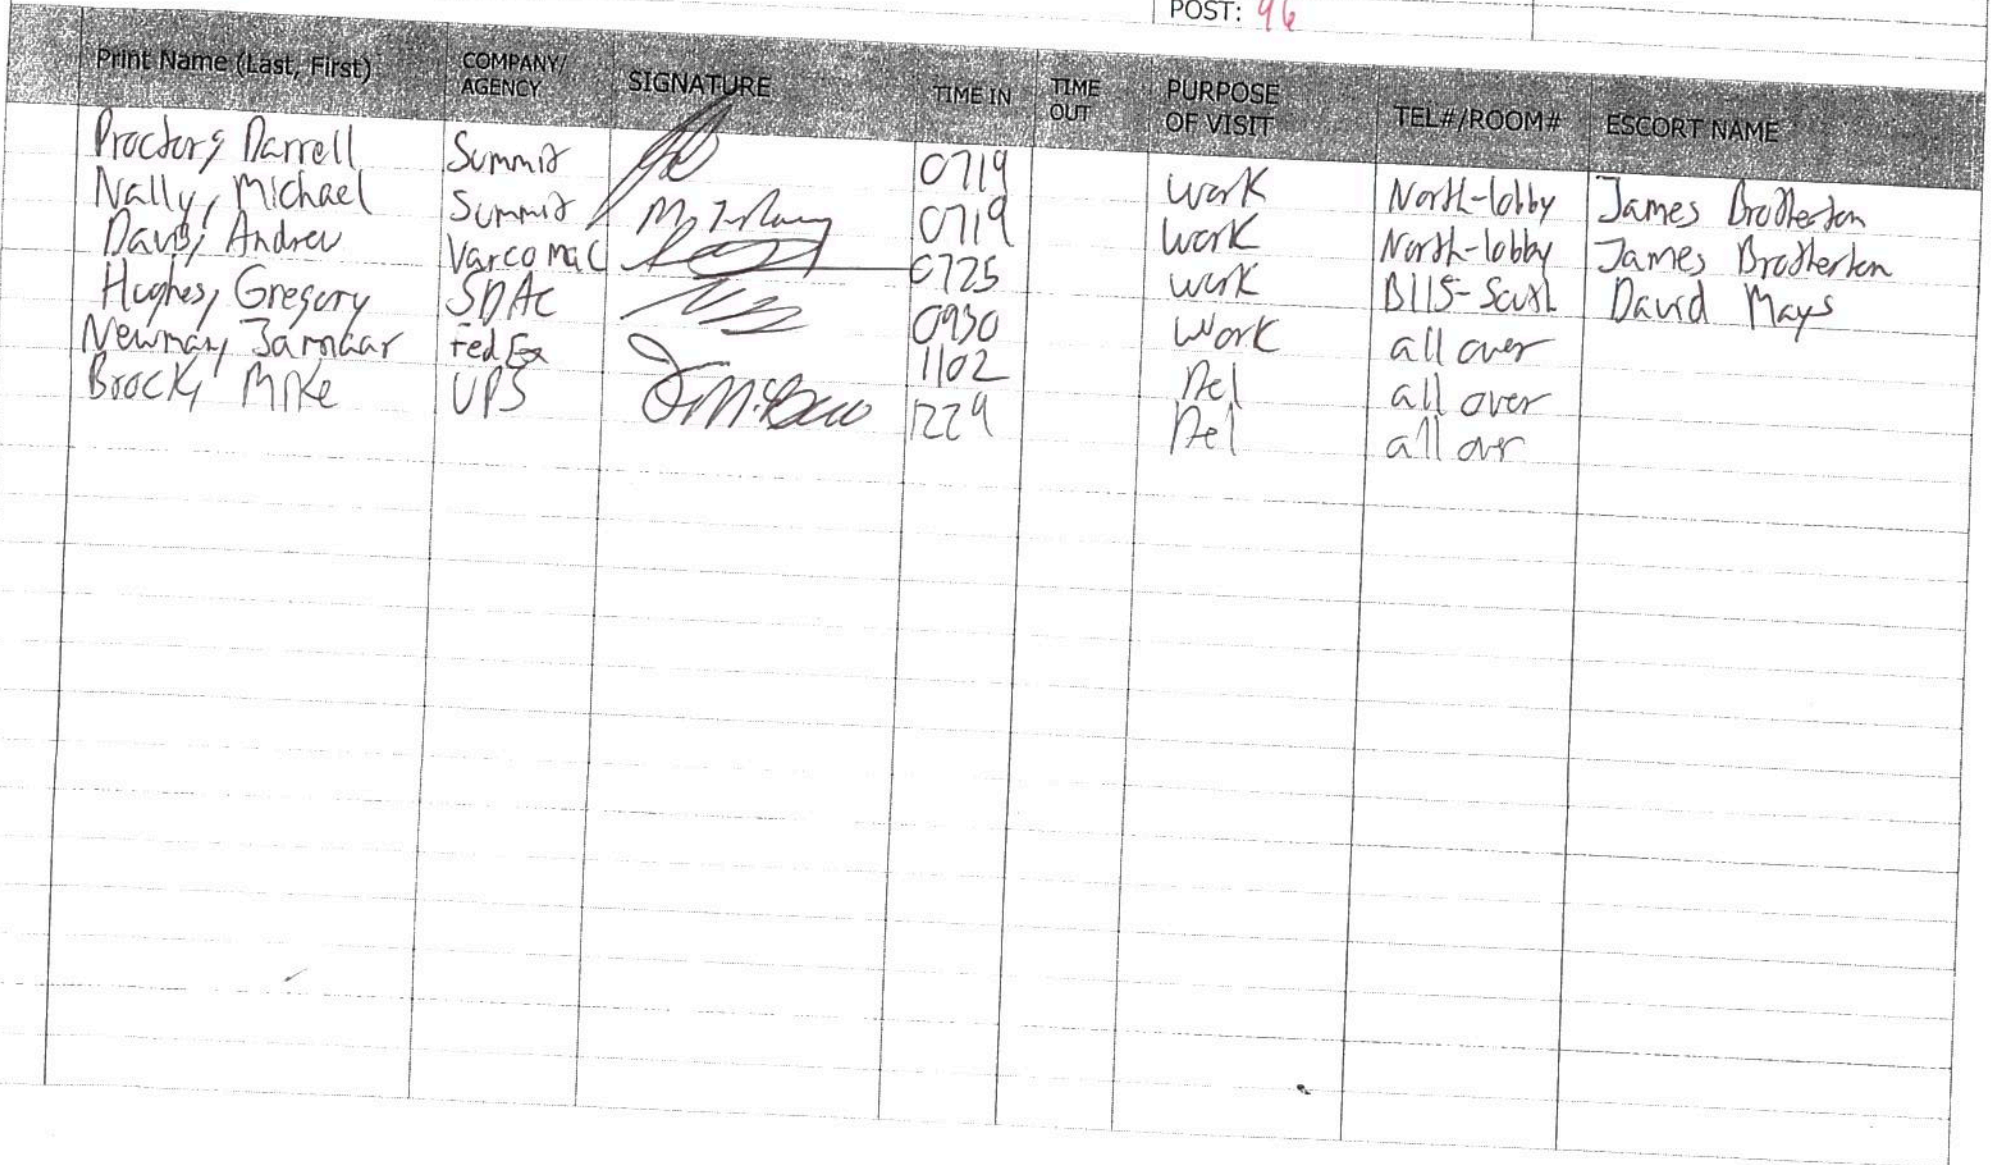 POST: 96
Print Name (Last, First) COMPANY/ AGENCY SIGNATURE TIME IN TIME OUT PURPOSE OF VISIT TEL#/ROOM# ESCORT NAME
Proctor, Darrell Summit 0719 work North-lobby James Brotherton
Nally, Michael Summit 0719 work North-lobby James Brotherton
Davis, Andrew Varcomac 0725 work B115-South David Mays
Hughes, Gregory SDAC 0930 Work all over
Newman, Jamaar FedEx 1102 Del all over
Brock, Mike UPS 1229 Del all over